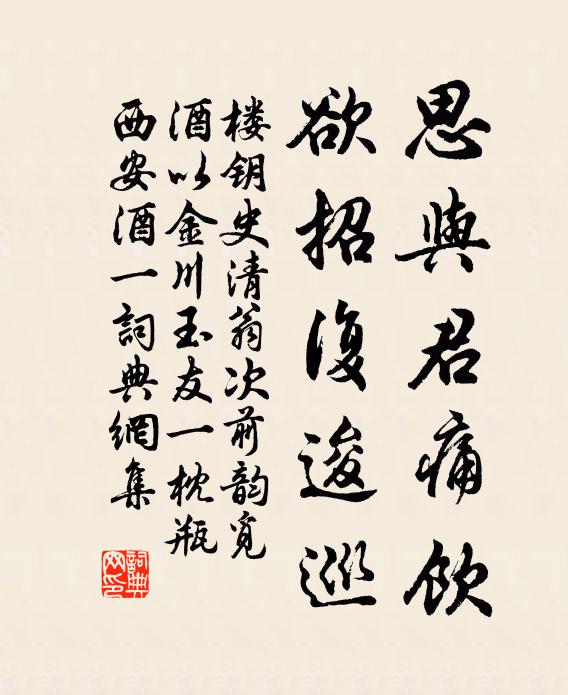 思與君痛飲
欲招復逡巡
楼钥史清翁次前韵覓
酒以金川玉友一枕瓶
西安酒一詞典網集
詞典
网印